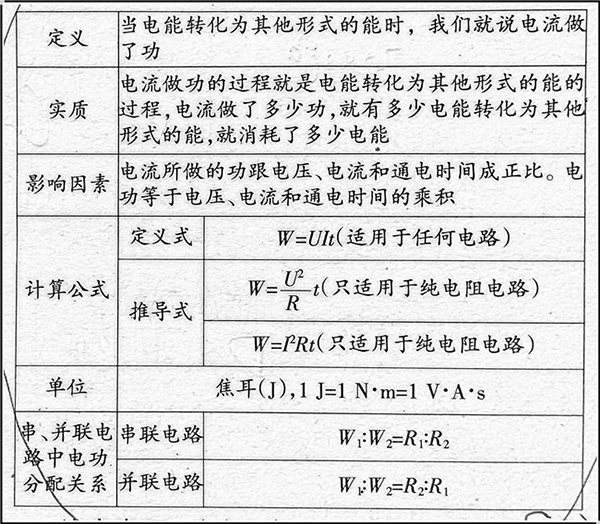 定义
当电能转化为其他形式的能时，我们就说电流做
了功
实质
电流做功的过程就是电能转化为其他形式的能的
过程,电流做了多少功,就有多少电能转化为其他
形式的能,就消耗了多少电能
影响因素
电流所做的功跟电压、电流和通电时间成正比。电
功等于电压、电流和通电时间的乘积
计算公式
定义式
W=UIt(适用于任何电路)
推导式
W=U²/R t(只适用于纯电阻电路)
W=I²Rt(只适用于纯电阻电路)
单位
焦耳(J),1 J=1 N·m=1 V·A·s
串、并联电
路中电功
分配关系
串联电路
W₁:W₂=R₁:R₂
并联电路
W₁:W₂=R₂:R₁